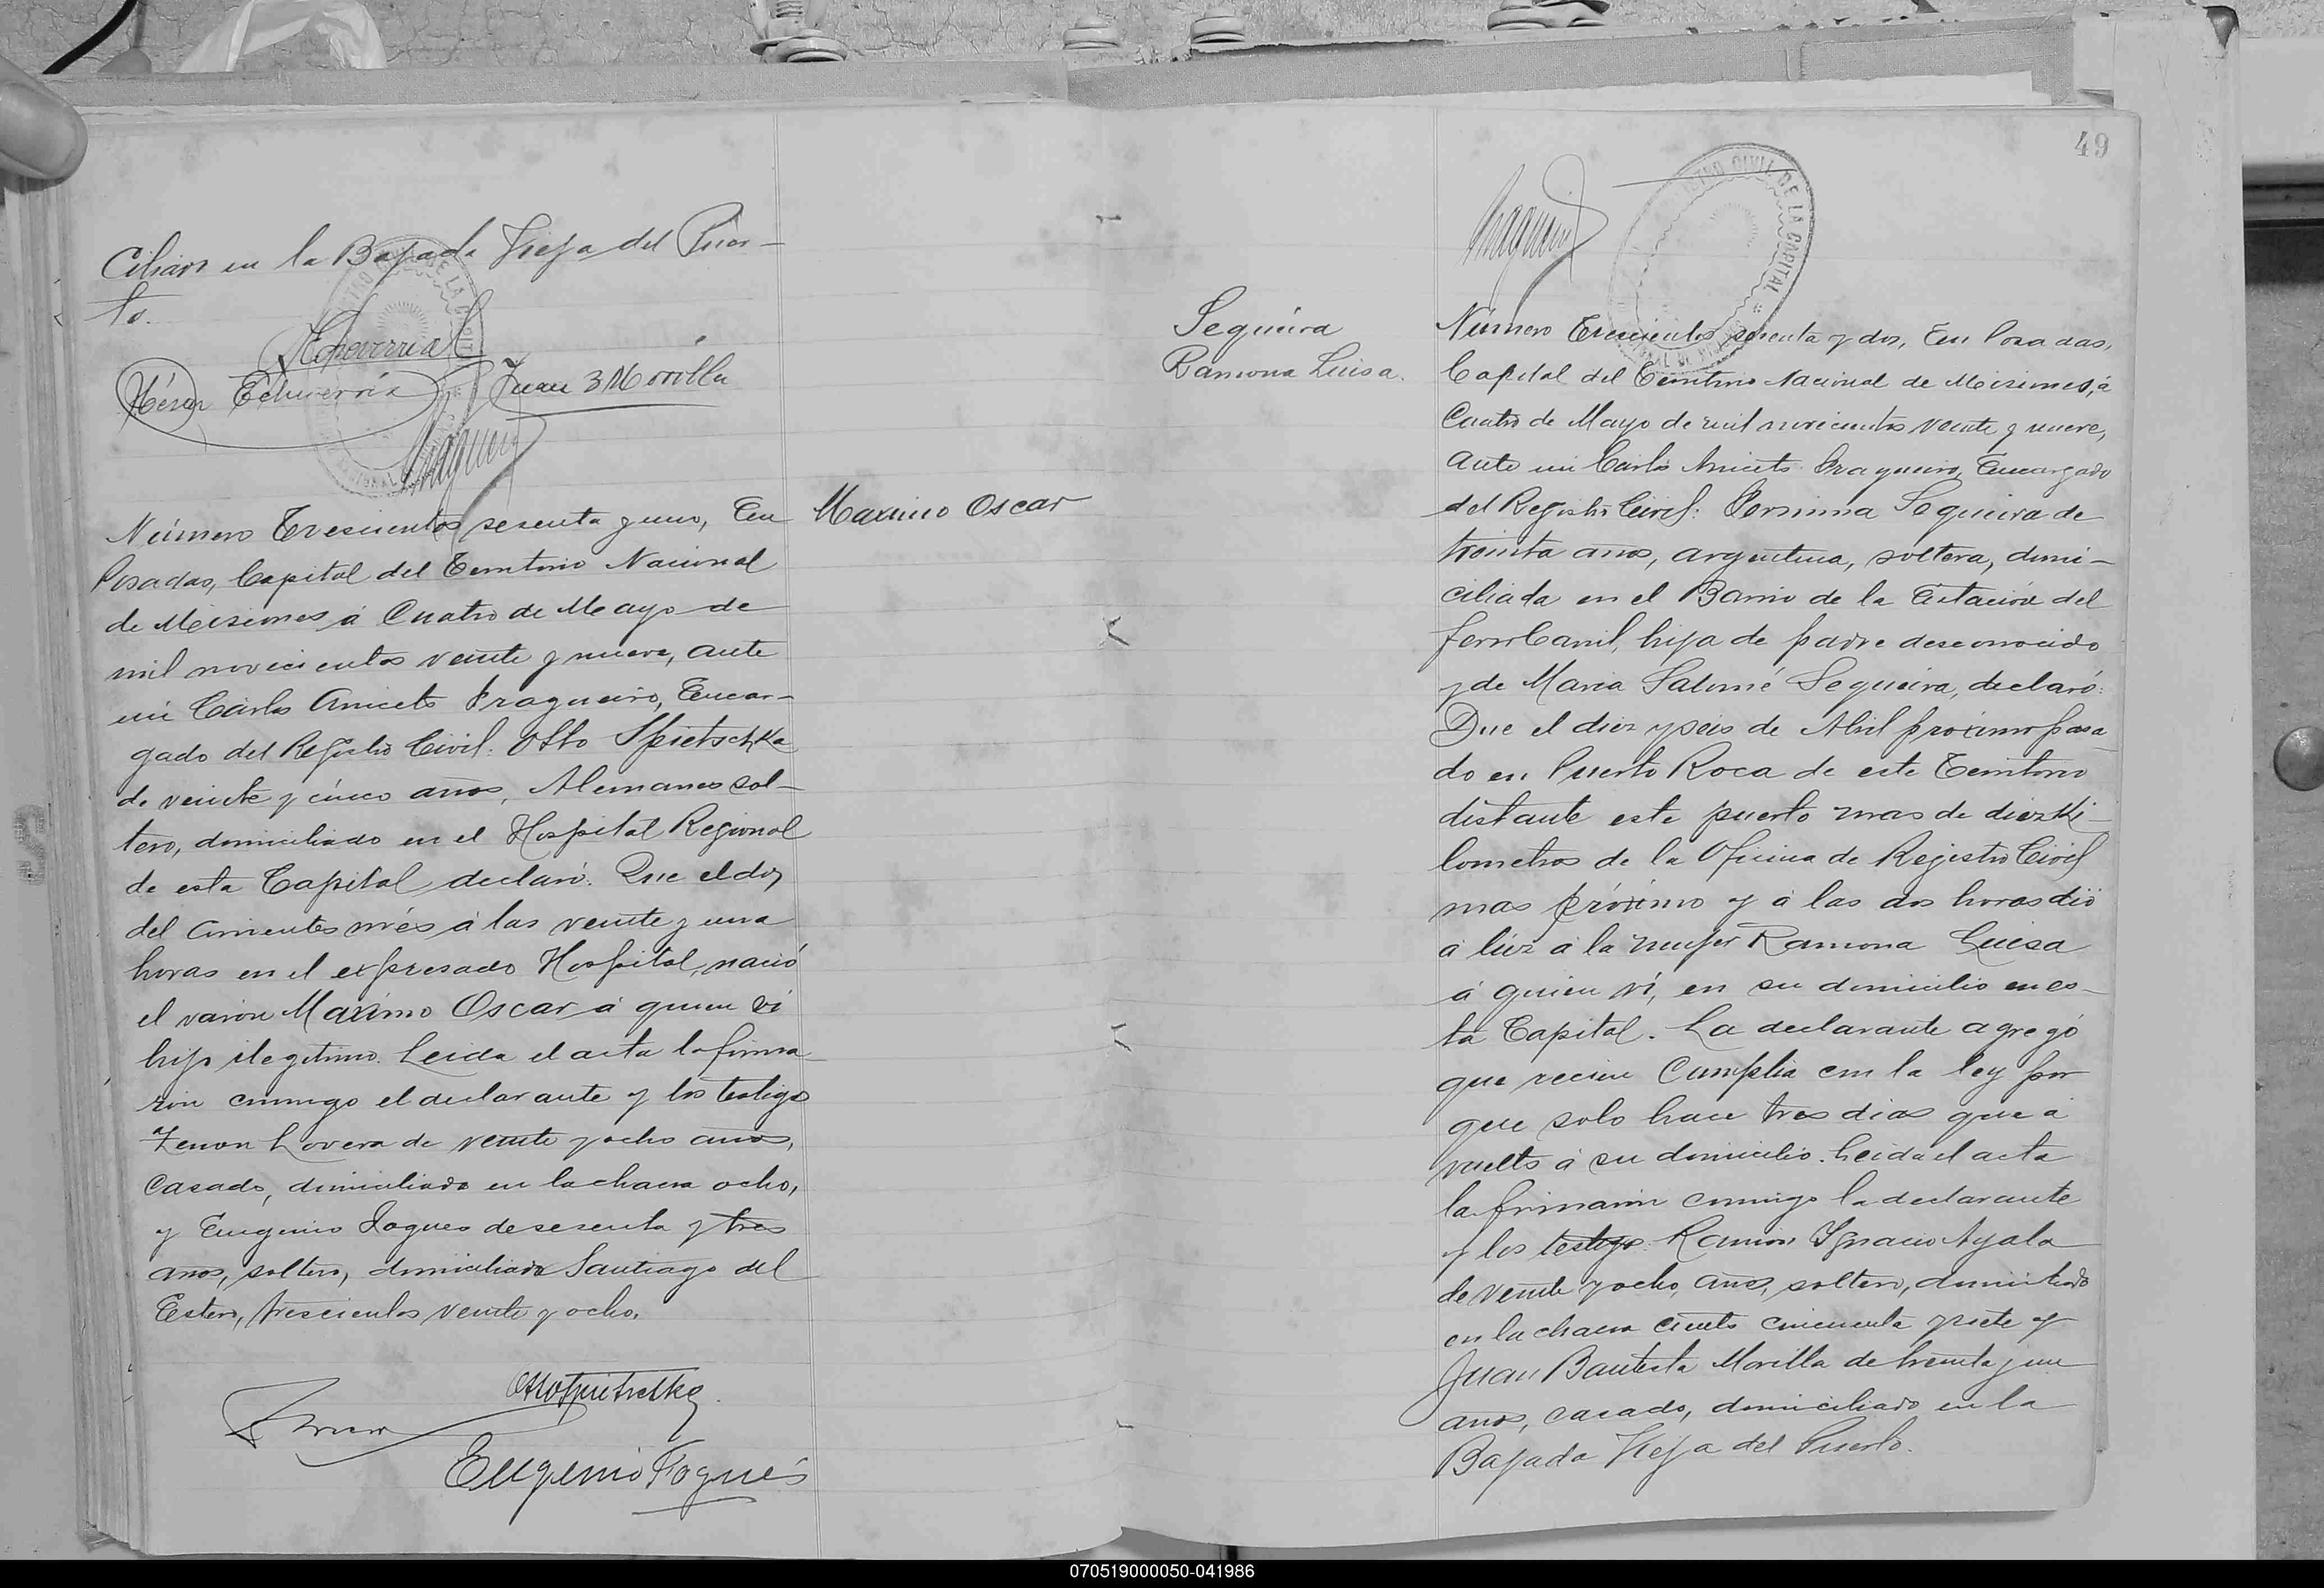 ciliado en la Bajada Vieja del Puer-
to.
Echeverria
Echeverría Juan B Morilla
Número Trescientos sesenta y uno, En
Maximo Oscar
Posadas, Capital del Territorio Nacional
de Misiones á Cuatro de Mayo de
mil novecientos veinte y nueve, ante
mi Carlos Aniceto Fragueiro, Encar-
gado del Registro Civil: Otto Spietschka
de veinte y cinco años, Aleman sol-
tero, domiciliado en el Hospital Regional
de esta Capital declaró: Que el dos
del corriente més á las veinte y una
horas en el expresado Hospital, nació
el varon Maximo Oscar á quien ví
hijo ilegitimo. Leida el acta la firma-
ron conmigo el declarante y los testigos
Zenon Lovera de veinte y ocho años,
casado, domiciliado en la chacra ocho,
y Eugenio Fogues de sesenta y tres
años, soltero, domiciliado Santiago del
Estero, trescientos veinte y ocho.
Eugenio Fogués
49
REGISTRO CIVIL DE LA CAPITAL
Sequeira
Ramona Luisa.
Número Trescientos sesenta y dos, En Posadas,
Capital del Territorio Nacional de Misiones, á
Cuatro de Mayo de mil novecientos veinte y nueve,
ante mi Carlos Aniceto Fragueiro, Encargado
del Registro Civil: Sequeira de
treinta años, argentina, soltera, domi-
ciliada en el Barrio de la Estación del
ferroCarril, hija de padre desconocido
y de Maria Salomé Sequeira, declaró:
Que el diez y seis de Abril próximo pasa-
do en Puerto Roca de este Territorio
distante este puerto mas de diez Ki-
lometros de la Oficina de Registro Civil
mas próximo y á las dos horas dió
á luz á la mujer Ramona Luisa
á quien ví, en su domicilio en es-
ta Capital. La declarante agregó
que recien cumplia con la ley por
que solo hace tres dias que á
vuelto á su domicilio. Leida el acta
la firmaron conmigo la declarante
y los testigos: Ramon Ignacio Ayala
de veinte y ocho, años, soltero, domiciliado
en la chacra ciento cincuenta y siete y
Juan Bautista Morilla de treinta y un
años, casado, domiciliado en la
Bajada Vieja del Puerto.
070519000050-041986